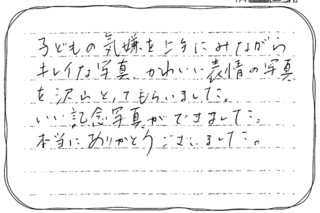 子どもの気嫌を上手にみながら
キレイな写真、かわいい表情の写真
を沢山とってもらいました。
いい記念写真ができました。
本当にありがとうございました。